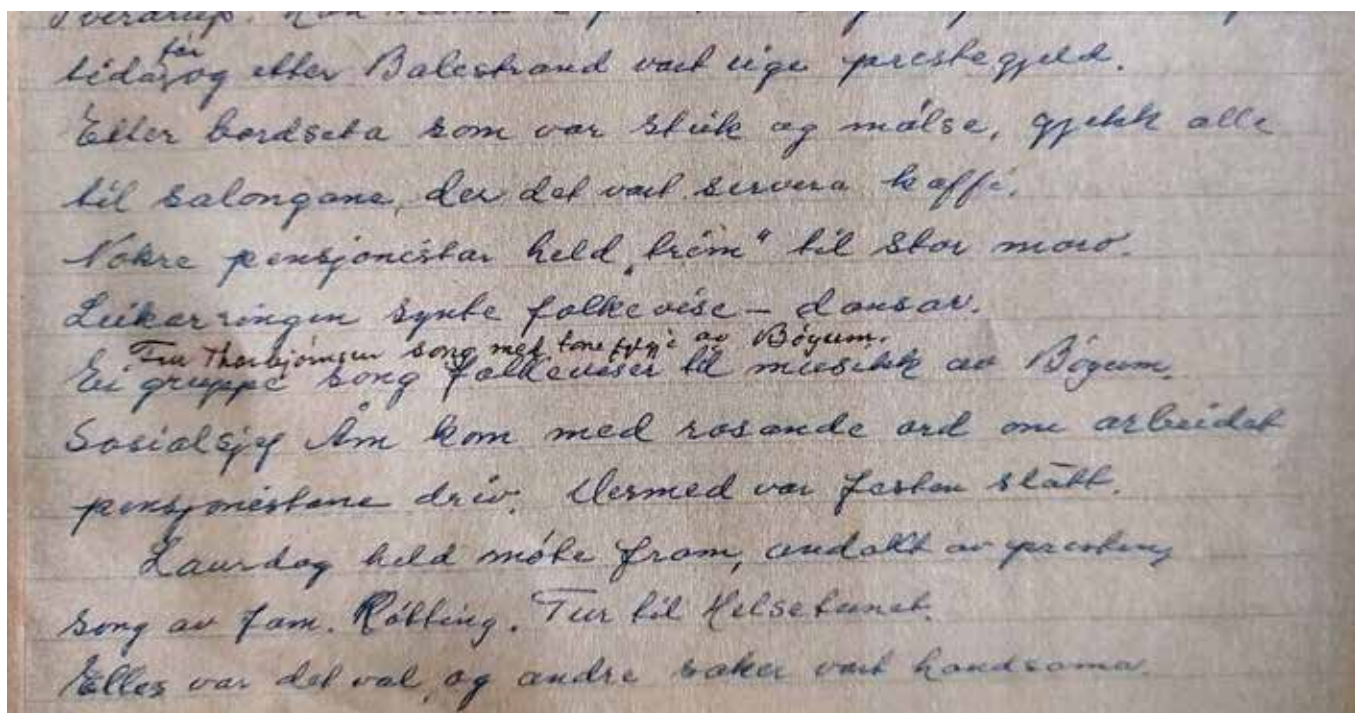 Sverdrup.
før
tida, og etter Balestrand vart eige prestegjeld.
Etter bordseta som var steik og målse, gjekk alle
til salongane, der det vart servera kaffi.
Nokre pensjonistar held „trim“ til stor moro.
Leikarringen synte folkevise – dansar.
Fru Thorbjørnsen song med tonefylgje av Bøyum.
Ei gruppe song folkeviser til musikk av Bøyum.
Sosialsjef Åm kom med rosande ord om arbeidet
pensjonistane driv. Dermed var festen slått.
Laurdag held møte fram, andakt av presten,
song av fam. Røtting. Tur til Helsetunet.
Elles var det val, og andre saker vart handsama.